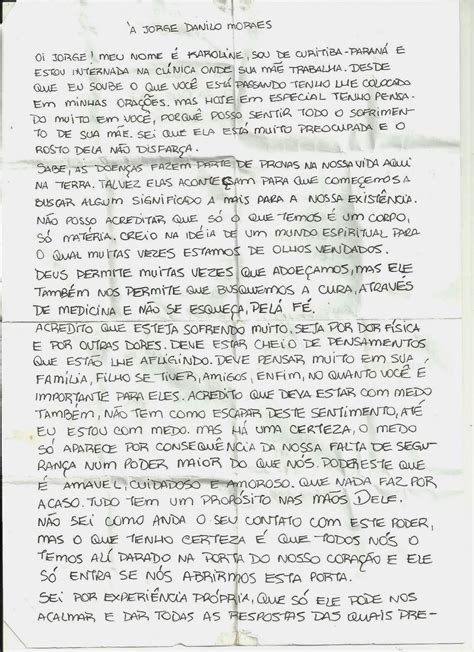 À JORGE DANILO MORAES
OI JORGE! MEU NOME É KAROLINE, SOU DE CURITIBA-PARANÁ E
ESTOU INTERNADA NA CLÍNICA ONDE SUA MÃE TRABALHA. DESDE
QUE EU SOUBE O QUE VOCÊ ESTÁ PASSANDO TENHO LHE COLOCADO
EM MINHAS ORAÇÕES. MAS HOJE EM ESPECIAL TENHO PENSA-
DO MUITO EM VOCÊ, PORQUÊ POSSO SENTIR TODO O SOFRIMEN-
TO DE SUA MÃE. SEI QUE ELA ESTÁ MUITO PREOCUPADA E O
ROSTO DELA NÃO DISFARÇA.
SABE, AS DOENÇAS FAZEM PARTE DE PROVAS NA NOSSA VIDA AQUI
NA TERRA. TALVEZ ELAS ACONTEÇAM PARA QUE COMEÇEMOS A
BUSCAR ALGUM SIGNIFICADO A MAIS PARA A NOSSA EXISTÊNCIA.
NÃO POSSO ACREDITAR QUE SÓ O QUE TEMOS É UM CORPO,
SÓ MATÉRIA. CREIO NA IDÉIA DE UM MUNDO ESPIRITUAL PARA
O QUAL MUITAS VEZES ESTAMOS DE OLHOS VENDADOS.
DEUS PERMITE MUITAS VEZES QUE ADOEÇAMOS, MAS ELE
TAMBÉM NOS PERMITE QUE BUSQUEMOS A CURA, ATRAVÉS
DE MEDICINA E NÃO SE ESQUEÇA, PELA FÉ.
ACREDITO QUE ESTEJA SOFRENDO MUITO. SEJA POR DOR FÍSICA
E POR OUTRAS DORES. DEVE ESTAR CHEIO DE PENSAMENTOS
QUE ESTÃO LHE AFLIGINDO. DEVE PENSAR MUITO EM SUA
FAMÍLIA, FILHO SE TIVER, AMIGOS, ENFIM, NO QUANTO VOCÊ É
IMPORTANTE PARA ELES. ACREDITO QUE DEVA ESTAR COM MEDO
TAMBÉM, NÃO TEM COMO ESCAPAR DESTE SENTIMENTO, ATÉ
EU ESTOU COM MEDO. MAS HÁ UMA CERTEZA, O MEDO
SÓ APARECE POR CONSEQUÊNCIA DA NOSSA FALTA DE SEGU-
RANÇA NUM PODER MAIOR DO QUE NÓS. PODER ESTE QUE
É AMAVEL, CUIDADOSO E AMOROSO. QUE NADA FAZ POR
ACASO. TUDO TEM UM PROPÓSITO NAS MÃOS DELE.
NÃO SEI COMO ANDA O SEU CONTATO COM ESTE PODER,
MAS O QUE TENHO CERTEZA É QUE TODOS NÓS O
TEMOS ALI PARADO NA PORTA DO NOSSO CORAÇÃO E ELE
SÓ ENTRA SE NÓS ABRIRMOS ESTA PORTA.
SEI POR EXPERIÊNCIA PRÓPRIA, QUE SÓ ELE PODE NOS
ACALMAR E DAR TODAS AS RESPOSTAS DAS QUAIS PRE-